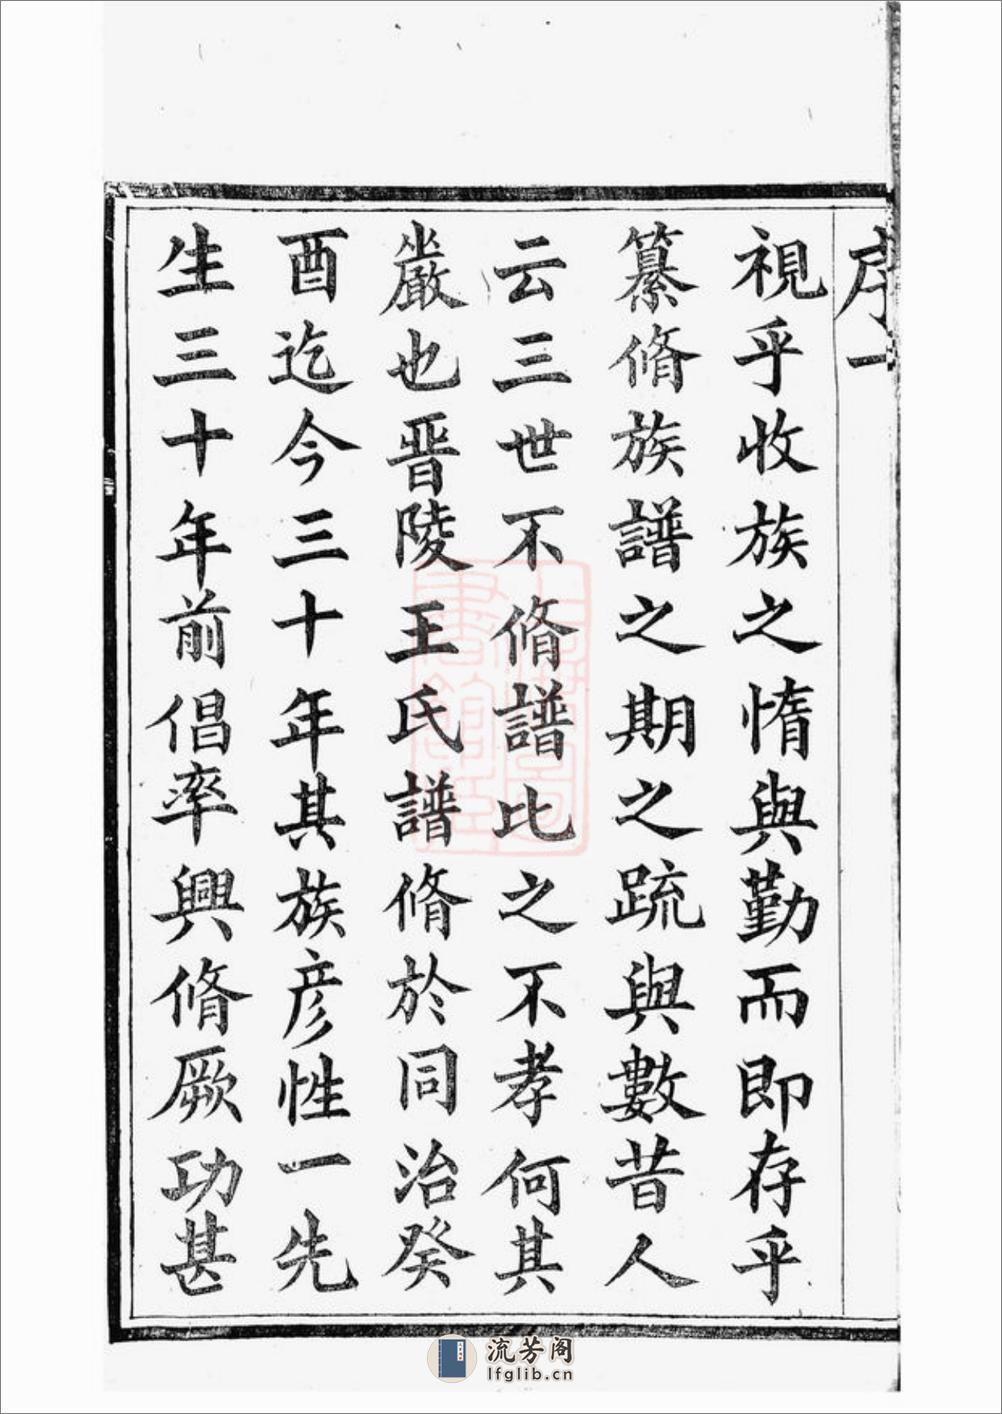 序一
視乎收族之惰與勤而即存乎
纂脩族譜之期之䟽與數昔人
云三世不脩譜比之不孝何其
嚴也晋陵王氏譜脩於同治癸
酉迄今三十年其族彦性一先
生三十年前倡率興脩厥功甚
上海圖書館藏
流芳阁
lfglib.cn